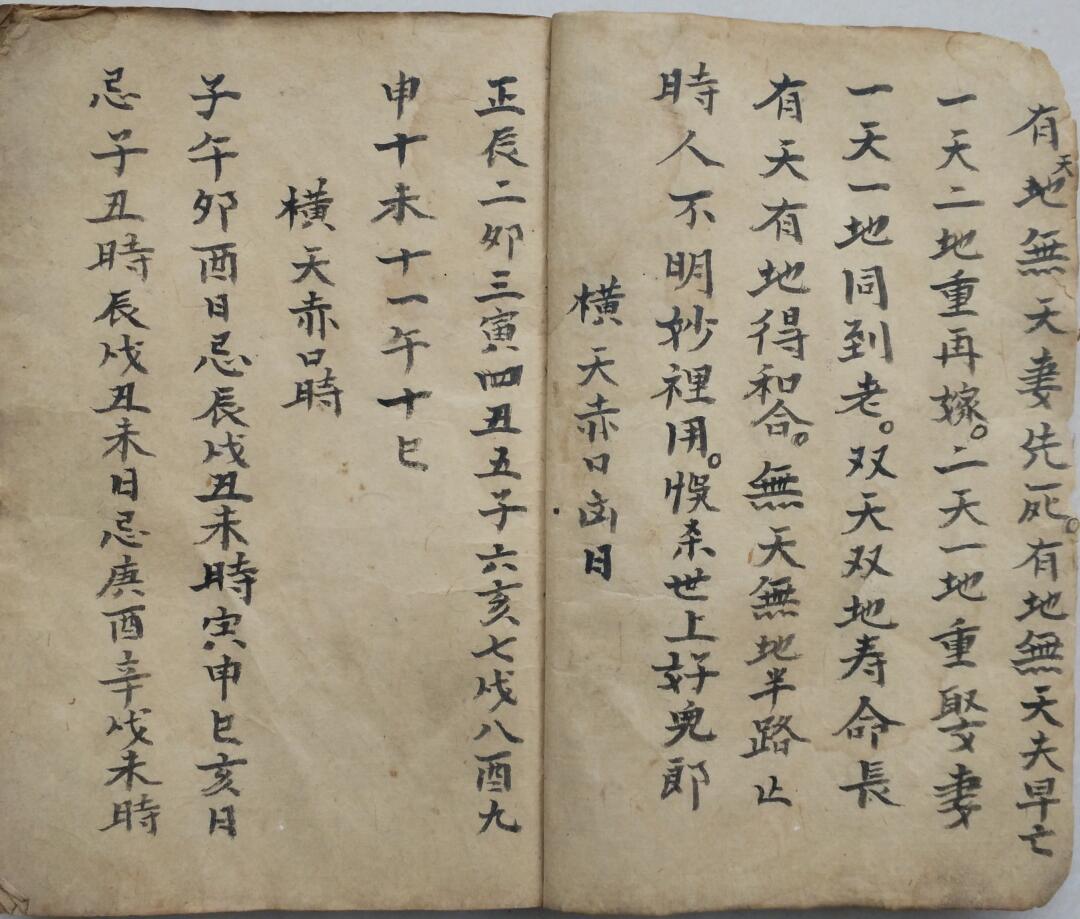 有天地無天妻先死。有地無天夫早亡
一天二地重再嫁。二天一地重娶妻
一天一地同到老。双天双地寿命長
有天有地得和合。無天無地半路止
時人不明妙裡用。悮杀世上好兒郎
橫天赤口凶日
正辰二卯三寅四丑五子六亥七戌八酉九
申十未十一午十巳
橫天赤口時
子午卯酉日忌辰戌丑未時寅申巳亥日
忌子丑時辰戌丑未日忌庚酉辛戌未時